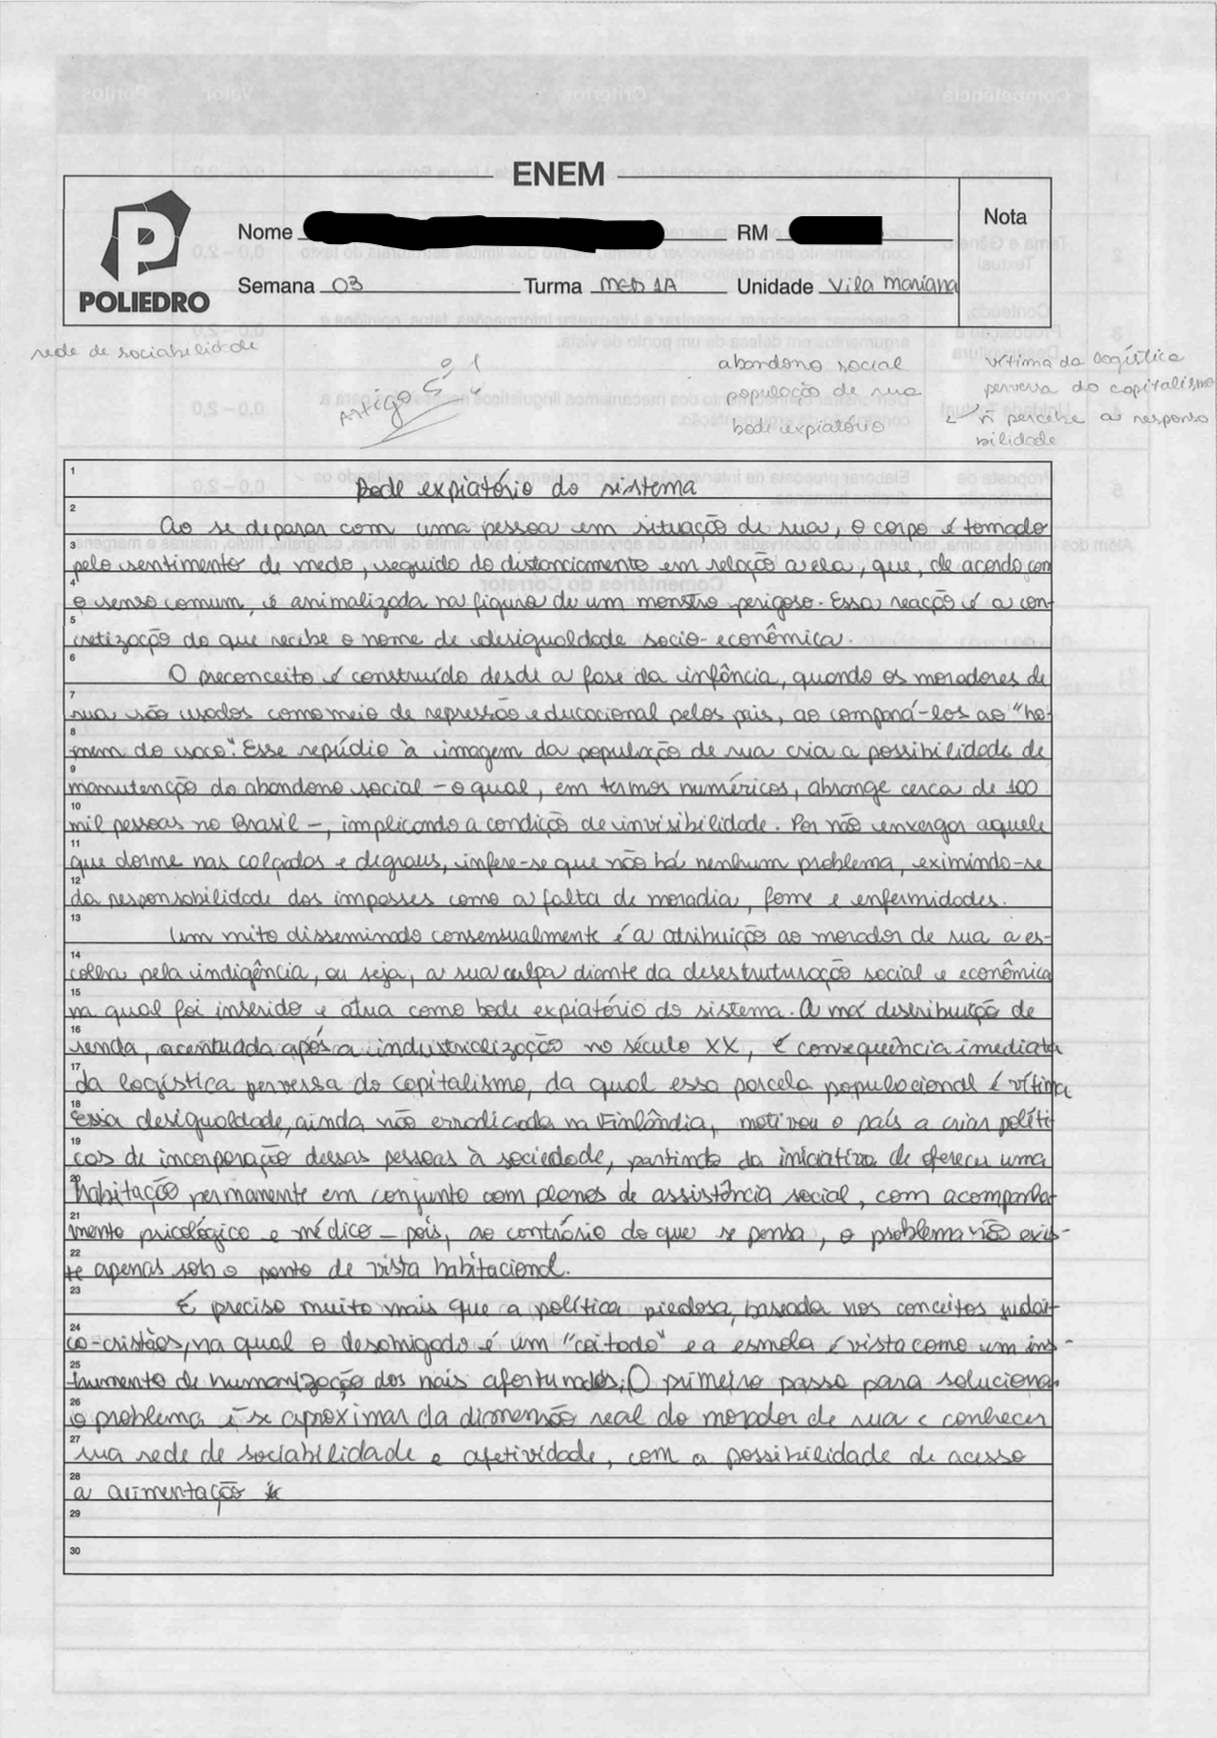 ENEM
POLIEDRO
Nome
RM
Nota
Semana 03
Turma MED 1A
Unidade Vila Mariana
rede de sociabilidade
Artigo
abandono social
população de rua
bode expiatório
vítima da logística
perversa do capitalismo
ñ percebe a respons
bilidade
1
Bode expiatório do sistema
2
Ao se deparar com uma pessoa em situação de rua, o corpo é tomado
3
pelo sentimento de medo, seguido do distanciamento em relação a ela, que, de acordo com
4
o senso comum, é animalizada na figura de um monstro perigoso. Essa reação é a con-
5
cretização do que recebe o nome de desigualdade socio-econômica.
6
O preconceito é construído desde a fase da infância, quando os moradores de
7
rua são usados como meio de repressão educacional pelos pais, ao compará-los ao "ho-
8
mem do saco". Esse repúdio à imagem da população de rua cria a possibilidade de
9
manutenção do abandono social - o qual, em termos numéricos, abrange cerca de 100
10
mil pessoas no Brasil -, implicando a condição de invisibilidade. Por não enxergar aquele
11
que dorme nas calçadas e degraus, infere-se que não há nenhum problema, eximindo-se
12
da responsabilidade dos impasses como a falta de moradia, fome e enfermidades.
13
Um mito disseminado consensualmente é a atribuição ao morador de rua a es-
14
colha pela indigência, ou seja, a sua culpa diante da desestruturação social e econômica
15
na qual foi inserido e atua como bode expiatório do sistema. A má distribuição de
16
renda, acentuada após a industrialização no século XX, é consequência imediata
17
da logística perversa do capitalismo, da qual essa parcela populacional é vítima
18
Essa desigualdade, ainda não erradicada na Finlândia, motivou o país a criar políti
19
cas de incorporação dessas pessoas à sociedade, partindo da iniciativa de oferecer uma
20
habitação permanente em conjunto com planos de assistência social, com acompanha-
21
mento psicológico e médico - pois, ao contrário do que se pensa, o problema não exis-
22
te apenas sob o ponto de vista habitacional.
23
É preciso muito mais que a política piedosa, baseada nos conceitos judai-
24
co-cristãos, na qual o desabrigado é um "coitado" e a esmola é vista como um ins-
25
trumento de humanização dos mais afortunados. O primeiro passo para solucionar
26
o problema é se aproximar da dimensão real do morador de rua e conhecer
27
sua rede de sociabilidade e afetividade, com a possibilidade de acesso
28
a alimentação
29
30